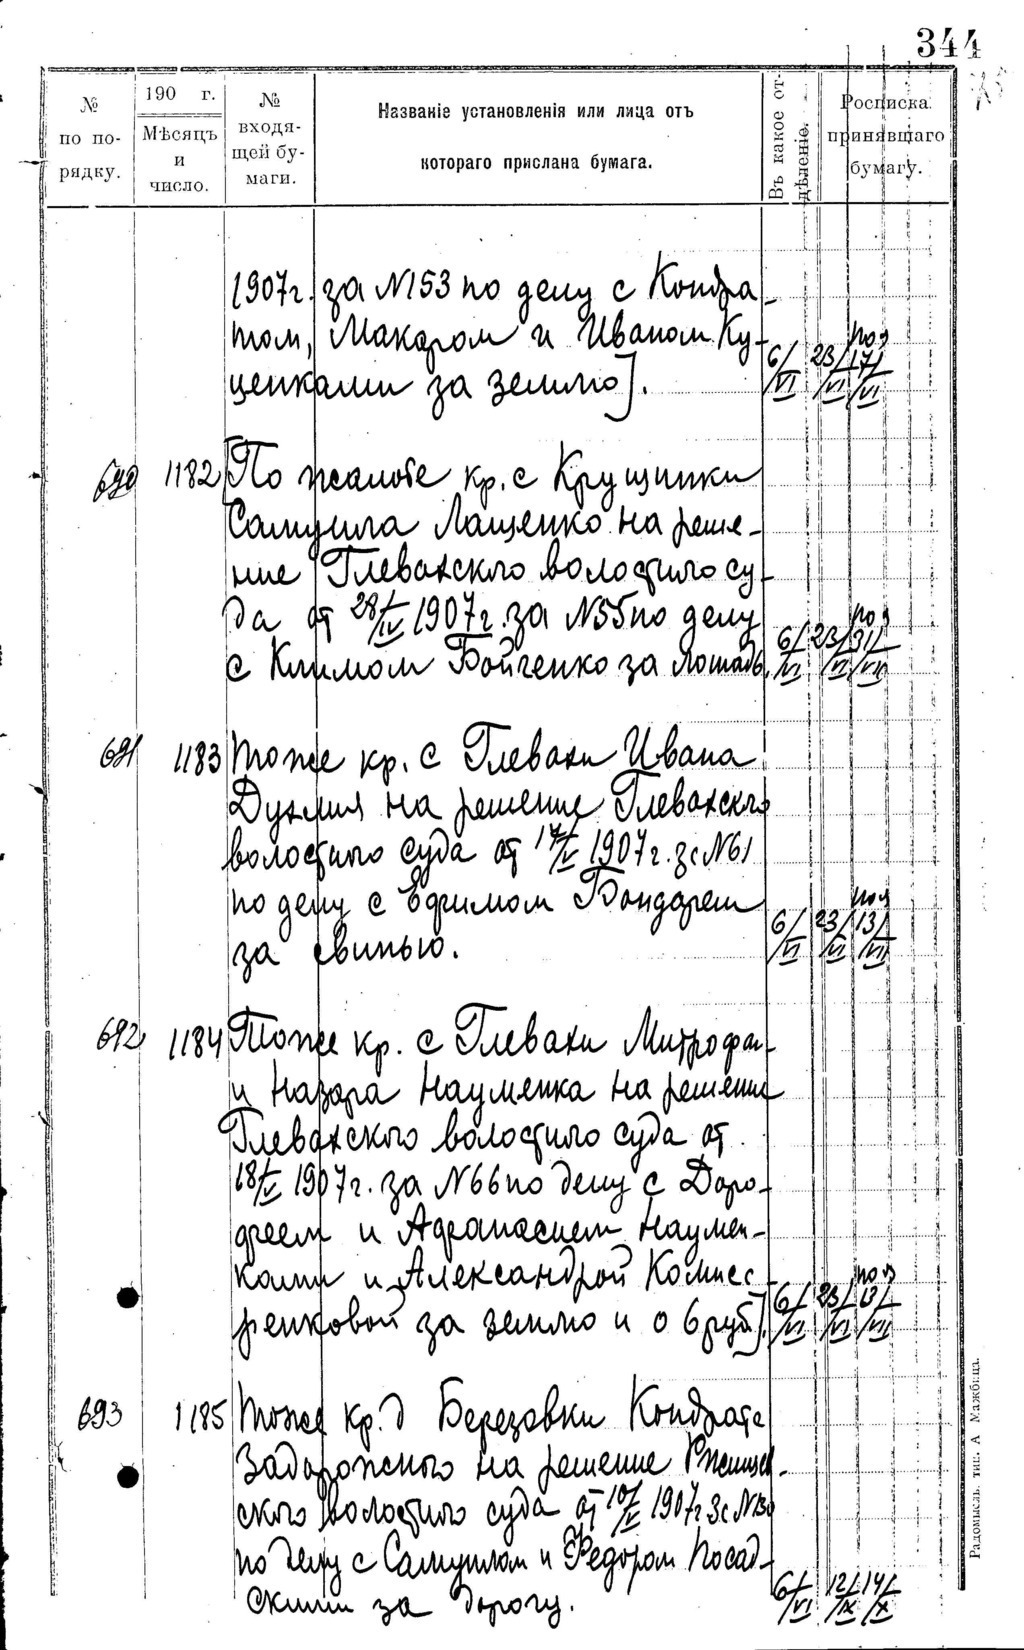 344
№ по по-рядку.
190 г.
Мѣсяцъ и число.
№ входя-щей бу-маги.
Названіе установленія или лица отъ
котораго прислана бумага.
Въ какое от-дѣленіе.
Росписка принявшаго бумагу.
1907 г. за №153 по делу с Кондра-
том, Макаром и Иваном Ку-
ценками за землю].
6/VI 23/VI 17/VI
690 1182 По жалобе кр. с Крущинки
Самуила Лащенко на реше-
ние Глевахского волостного су-
да от 28/IV 1907 г. за №55 по делу
с Климом Бойченко за лошадь.
6/VI 23/VI 31/VII
691 1183 Тоже кр. с Глевахи Ивана
на решение Глевахского
волостного суда от 17/V 1907 г. за №61
по делу с Ефимом Бондарем
за свинью.
6/VI 23/VI 13/VII
692 1184 Тоже кр. с Глевахи Митрофа-
и Назара Науменка на решение
Глевахского волостного суда от
18/V 1907 г. за №66 по делу с Доро-
феем и Афанасием Наумен-
ками и Александрой Комисс-
ренковой за землю и о 6 руб].
6/VI 23/VI 13/VII
693 1185 Тоже кр. д Березовки Кондрата
Задорожного на решение Ржищев-
ского волостного суда от 10/V 1907 г за №130
по делу с Самуилом и Федором Посад-
скими за дорогу.
6/VI 12/IX 14/X
Радомысль. тип. А Мажбица.